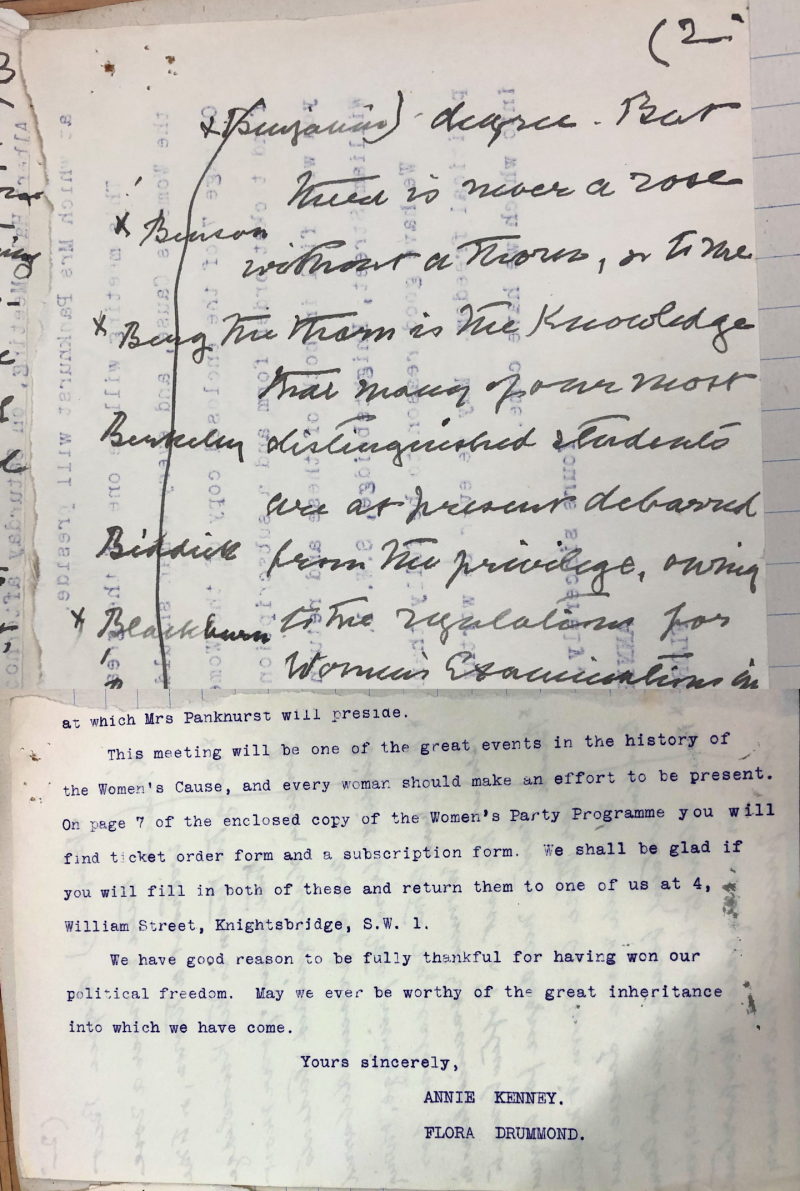 (2
x (Benjamin) degree. But
there is never a rose
x Benson
without a thorn, or to me
x Berg the thorn is the knowledge
that many of our most
Berkeley distinguished students
are at present debarred
Biddick from the privilege, owing
x Blackburn to the regulations for
Women's Examinations in
at which Mrs Pankhurst will preside.
This meeting will be one of the great events in the history of
the Women's Cause, and every woman should make an effort to be present.
On page 7 of the enclosed copy of the Women's Party Programme you will
find ticket order form and a subscription form. We shall be glad if
you will fill in both of these and return them to one of us at 4,
William Street, Knightsbridge, S.W. 1.
We have good reason to be fully thankful for having won our
political freedom. May we ever be worthy of the great inheritance
into which we have come.
Yours sincerely,
ANNIE KENNEY.
FLORA DRUMMOND.